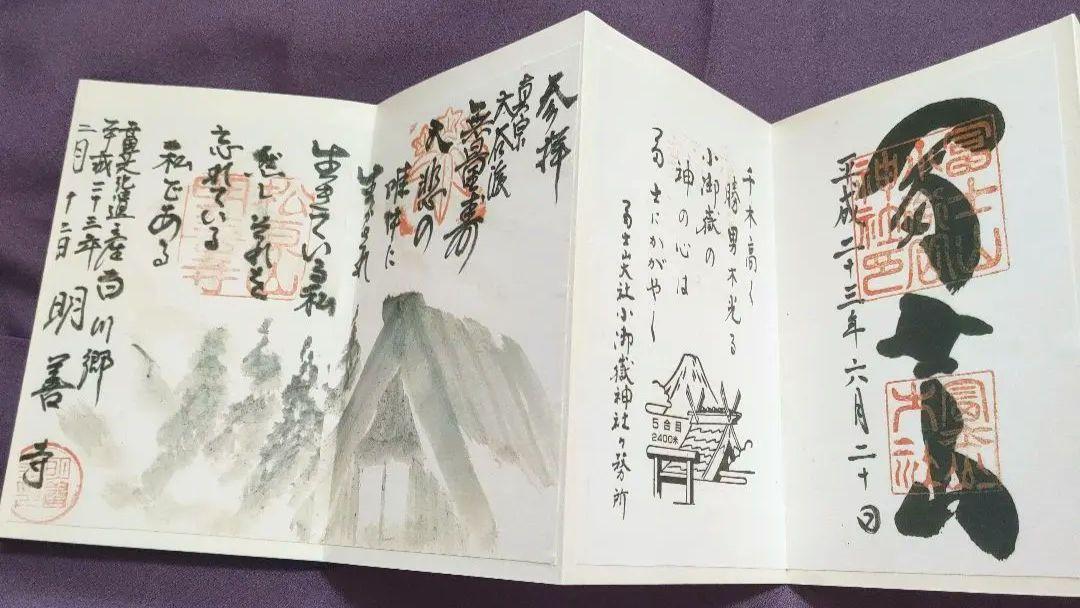 富士山
平成二十三年六月二十日
千木高く
勝男木光る
小御嶽の
神の心は
富士にかがやく
富士山大社小御嶽神社々務所
5合目
2400米
参拝
真宗
大谷派
無量寿
大悲の
生かされ
生きている私
然しそれを
忘れている
私である
世界文化遺産白川郷
平成二十三年
二月十二日 明善寺